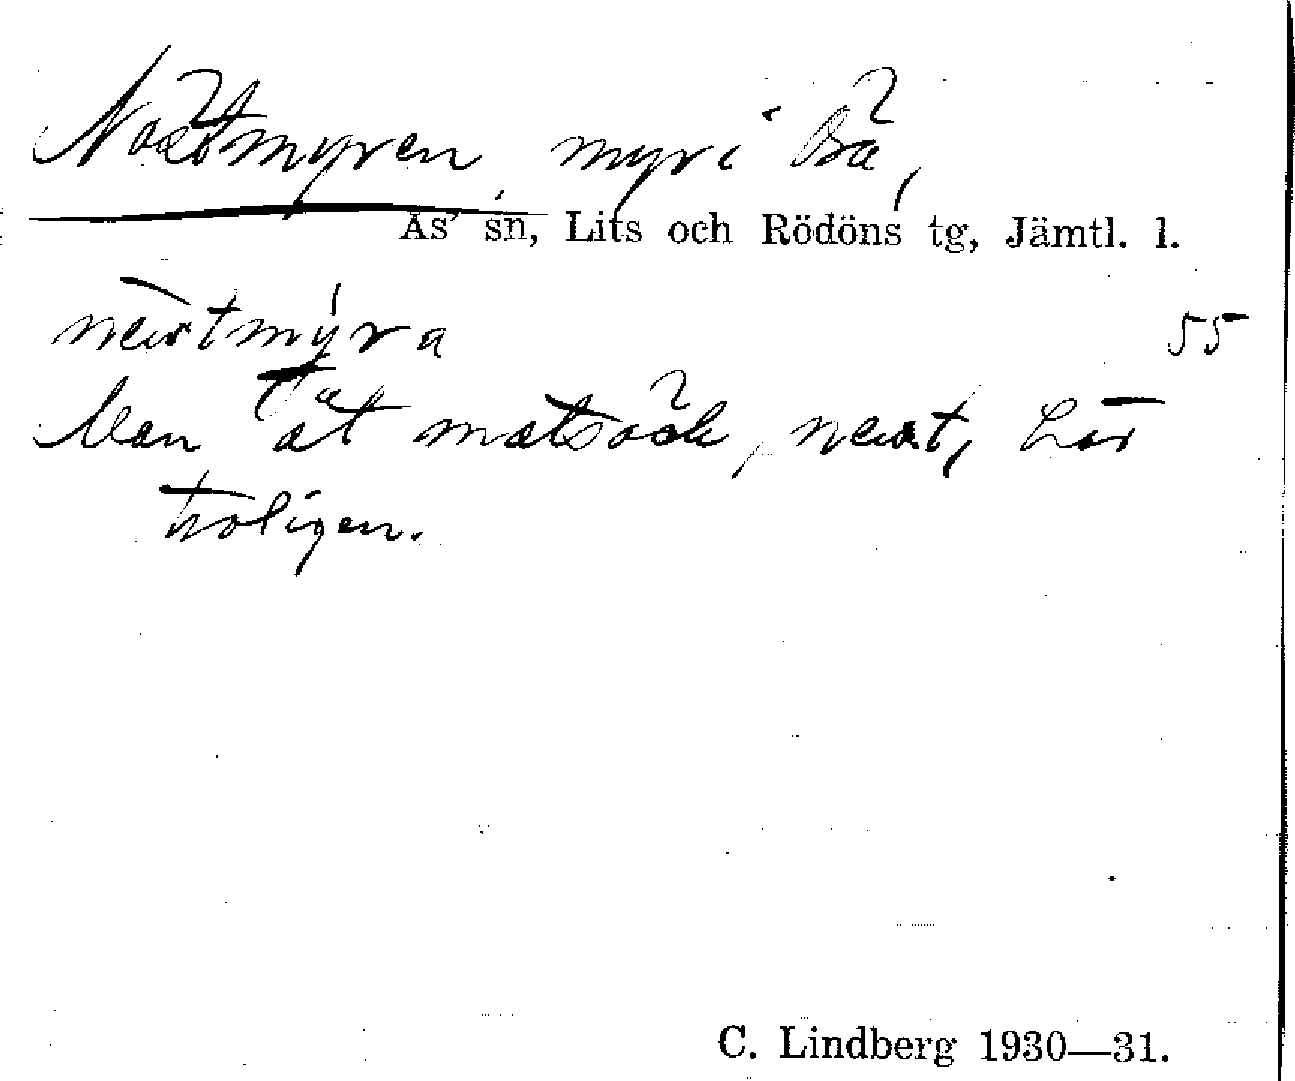 Nöstmyren, myr i Bä,
Ås sn, Lits och Rödöns tg, Jämtl. l.
55
Man åt matsäck, här
troligen.
C. Lindberg 1930—31.